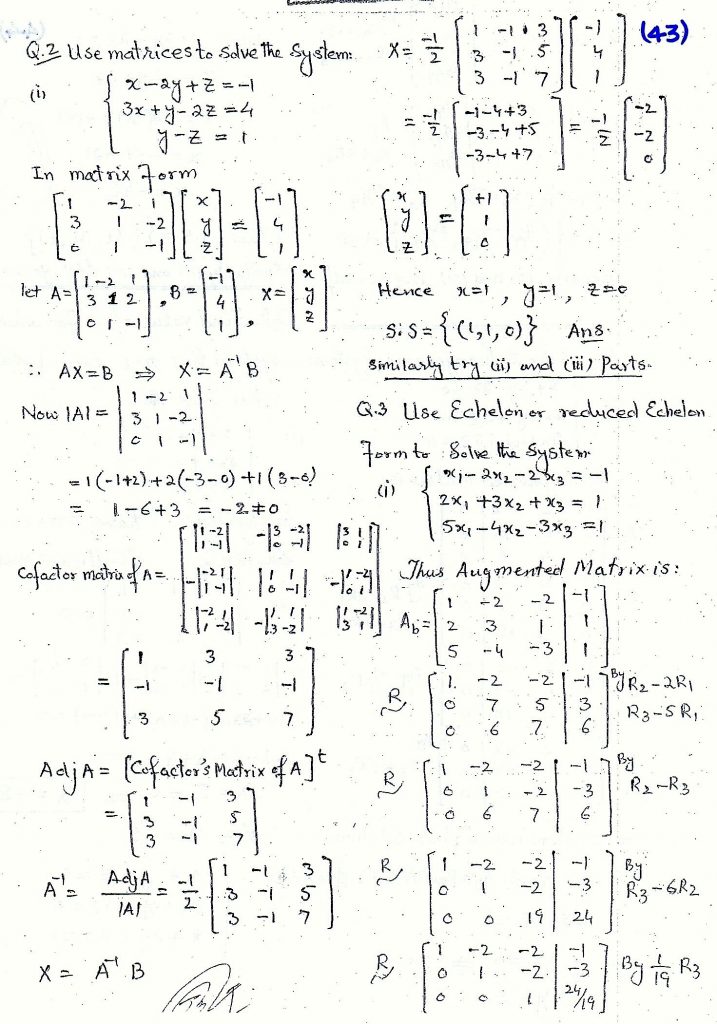 Q.2 Use matrices to solve the System:
(i) { x-2y+z = -1
3x+y-2z = 4
y-z = 1
In matrix Form
[1 -2 1] [x] [-1]
[3 1 -2] [y] = [4]
[0 1 -1] [z] [1]
let A = [1 -2 1] , B = [-1] , X = [x]
[3 1 2] [4] [y]
[0 1 -1] [1] [z]
∴ AX=B ⇒ X = A⁻¹ B
Now |A| = |1 -2 1|
|3 1 -2|
|0 1 -1|
= 1(-1+2)+2(-3-0)+1(3-0)
= 1-6+3 = -2≠0
Cofactor matrix of A =
[|1 -2; 1 -1| -|3 -2; 0 -1| |3 1; 0 1|]
[-|-2 1; 1 -1| |1 1; 0 -1| -|1 -2; 0 1|]
[|-2 1; 1 -2| -|1 1; 3 -2| |1 -2; 3 1|]
= [1 3 3]
[-1 -1 -1]
[3 5 7]
Adj A = [Cofactor's Matrix of A]ᵗ
= [1 -1 3]
[3 -1 5]
[3 -1 7]
A⁻¹ = Adj A / |A| = -1/2 [1 -1 3]
[3 -1 5]
[3 -1 7]
X = A⁻¹ B
(43)
X = -1/2 [1 -1 3] [-1]
[3 -1 5] [4]
[3 -1 7] [1]
= -1/2 [-1-4+3] = -1/2 [-2]
[-3-4+5] [-2]
[-3-4+7] [0]
[x] [+1]
[y] = [1]
[z] [0]
Hence x=1, y=1, z=0
S.S = {(1,1,0)} Ans.
Similarly try (ii) and (iii) Parts.
Q.3 Use Echelon or reduced Echelon
Form to Solve the System
(i) { x₁-2x₂-2x₃ = -1
2x₁+3x₂+x₃ = 1
5x₁-4x₂-3x₃ = 1
Thus Augmented Matrix is:
A_b = [1 -2 -2 | -1]
[2 3 1 | 1]
[5 -4 -3 | 1]
R [1 -2 -2 | -1] By R₂-2R₁
[0 7 5 | 3] R₃-5R₁
[0 6 7 | 6]
R [1 -2 -2 | -1] By
[0 1 -2 | -3] R₂-R₃
[0 6 7 | 6]
R [1 -2 -2 | -1] By
[0 1 -2 | -3] R₃-6R₂
[0 0 19 | 24]
R [1 -2 -2 | -1]
[0 1 -2 | -3] By 1/19 R₃
[0 0 1 | 24/19]